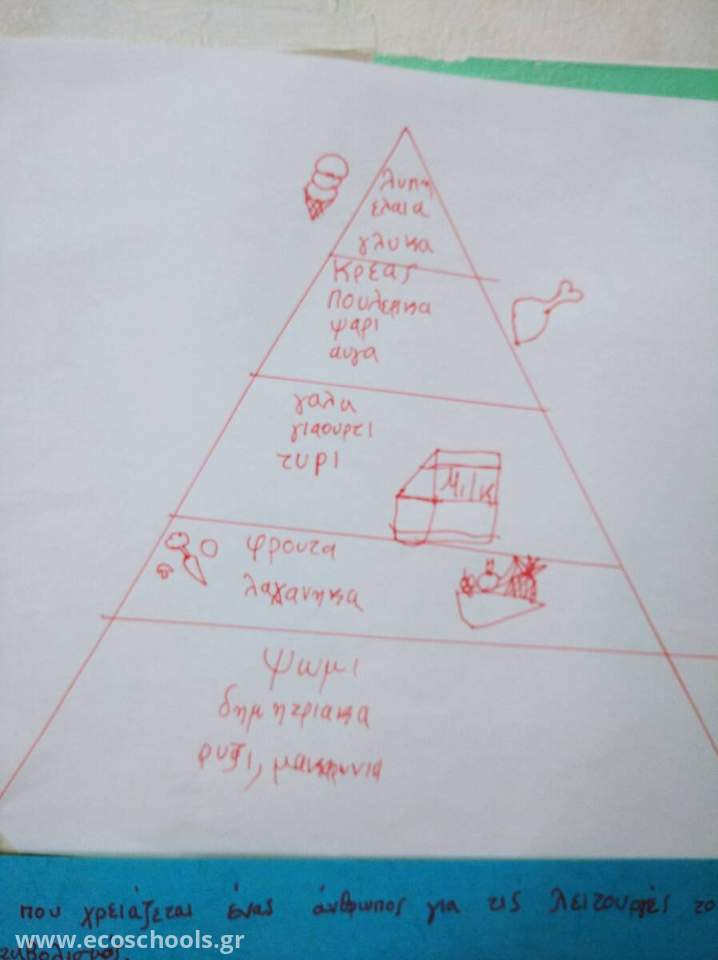 λυπη
ελαια
γλυκα
κρεας
πουλερικα
ψαρι
αυγα
γαλα
γιαουρτι
τυρι
Milk
φρουτα
λαχανηκα
ψωμι
δημητριακα
ρυζι, μακαρονια
που χρειάζεται ένας άνθρωπος για τις λειτουργίες το
www.ecoschools.gr